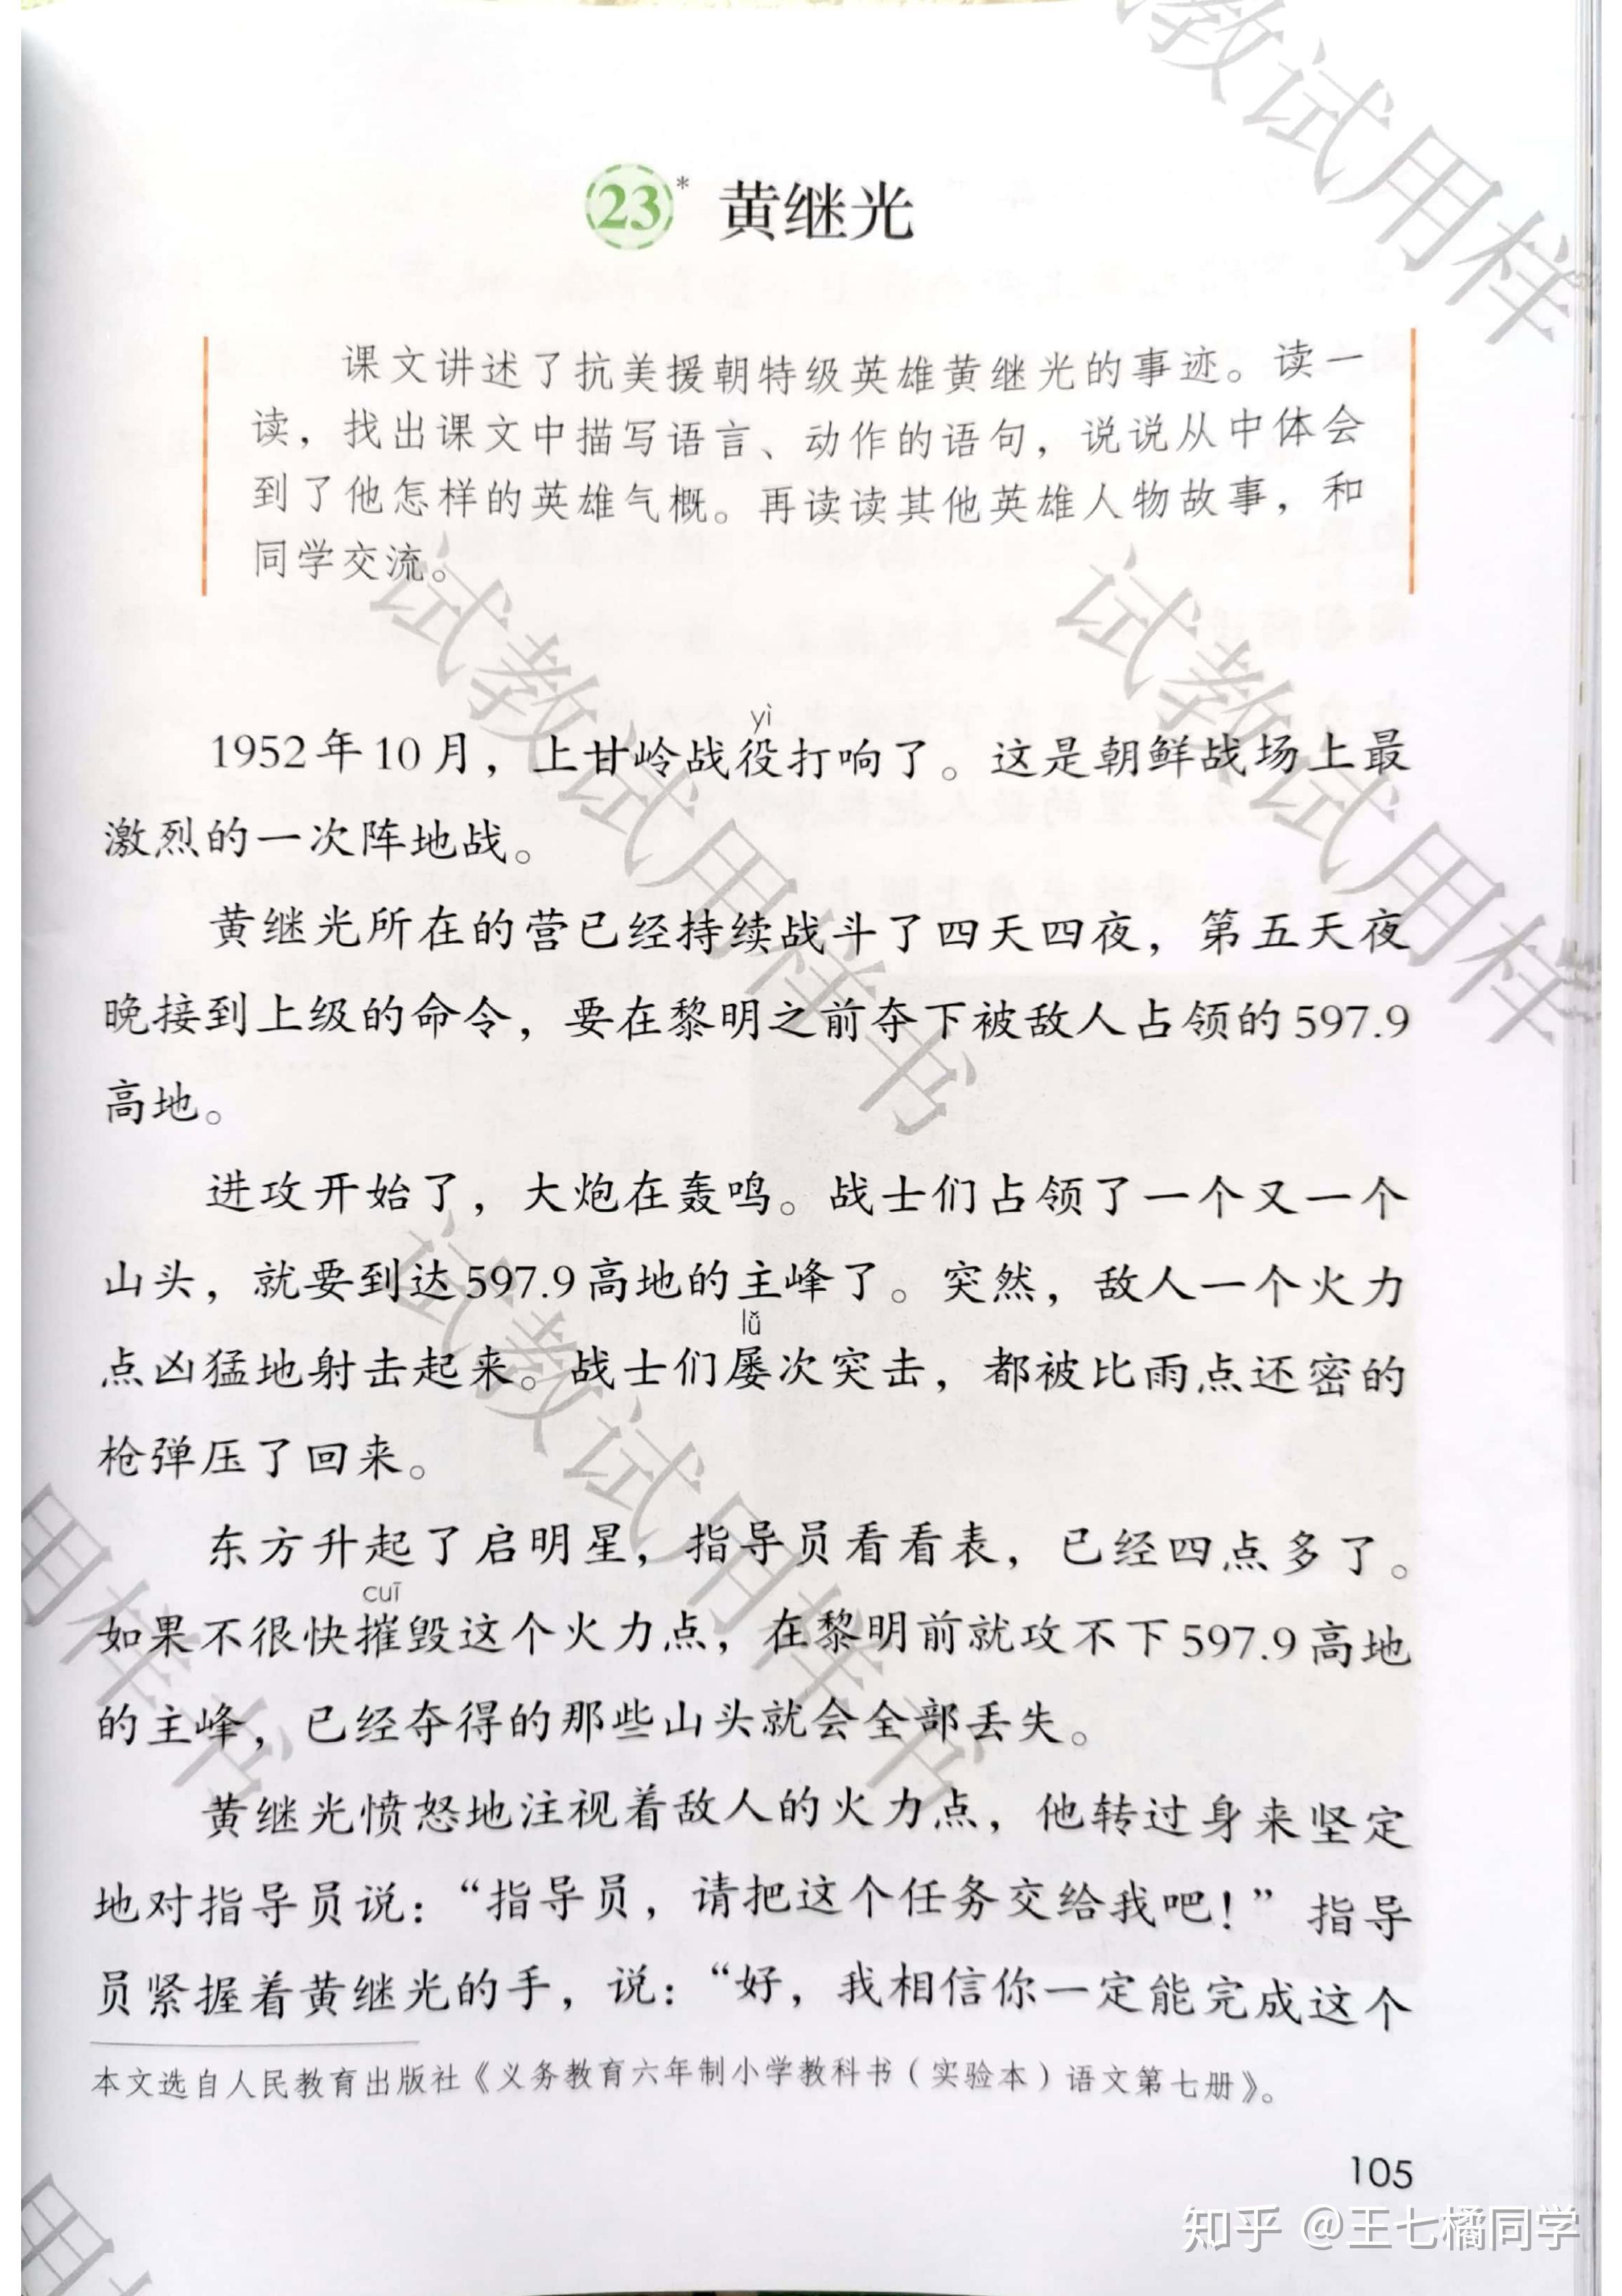 试教试用样
23* 黄继光
课文讲述了抗美援朝特级英雄黄继光的事迹。读一
读，找出课文中描写语言、动作的语句，说说从中体会
到了他怎样的英雄气概。再读读其他英雄人物故事，和
同学交流。
试教试用样书
试教试用样
yì
1952年10月，上甘岭战役打响了。这是朝鲜战场上最
激烈的一次阵地战。
黄继光所在的营已经持续战斗了四天四夜，第五天夜
晚接到上级的命令，要在黎明之前夺下被敌人占领的597.9
高地。
进攻开始了，大炮在轰鸣。战士们占领了一个又一个
山头，就要到达597.9高地的主峰了。突然，敌人一个火力
lǚ
点凶猛地射击起来。战士们屡次突击，都被比雨点还密的
枪弹压了回来。
试教试用样书
用样书
东方升起了启明星，指导员看看表，已经四点多了。
cuī
如果不很快摧毁这个火力点，在黎明前就攻不下597.9高地
的主峰，已经夺得的那些山头就会全部丢失。
黄继光愤怒地注视着敌人的火力点，他转过身来坚定
地对指导员说：“指导员，请把这个任务交给我吧！”指导
员紧握着黄继光的手，说：“好，我相信你一定能完成这个
本文选自人民教育出版社《义务教育六年制小学教科书（实验本）语文第七册》。
105
用
知乎 @王七橘同学